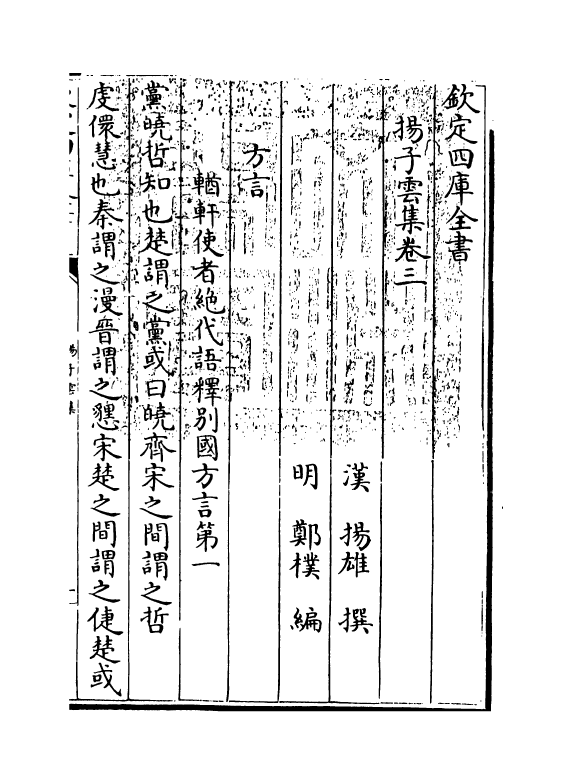 欽定四庫全書
揚子雲集卷三
漢 揚雄 撰
明 鄭樸 編
方言
輶軒使者絶代語釋別國方言第一
黨曉哲知也楚謂之黨或曰曉齊宋之間謂之哲
虔儇慧也秦謂之漫晉謂之𢠢宋楚之間謂之倢楚或
揚子雲集